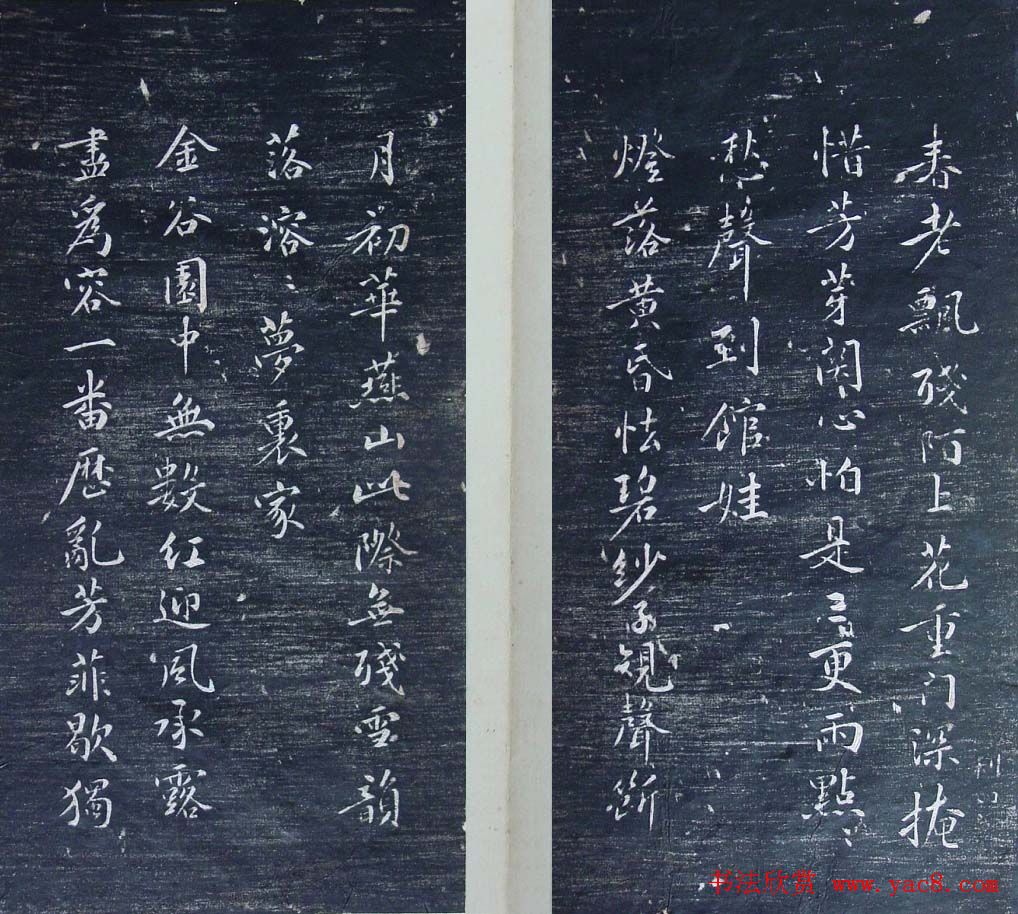 春老飄殘陌上花重门深掩
惜芳芽関心怕是三更雨點〻
愁聲到館娃
燈落黄昏怯碧紗子規聲斷
月初華燕山此際無殘雪韻
落溶〻夢裏家
金谷園中無數红迎風承露
盡為容一番歷亂芳菲歇獨
书法欣赏 www.yac8.com